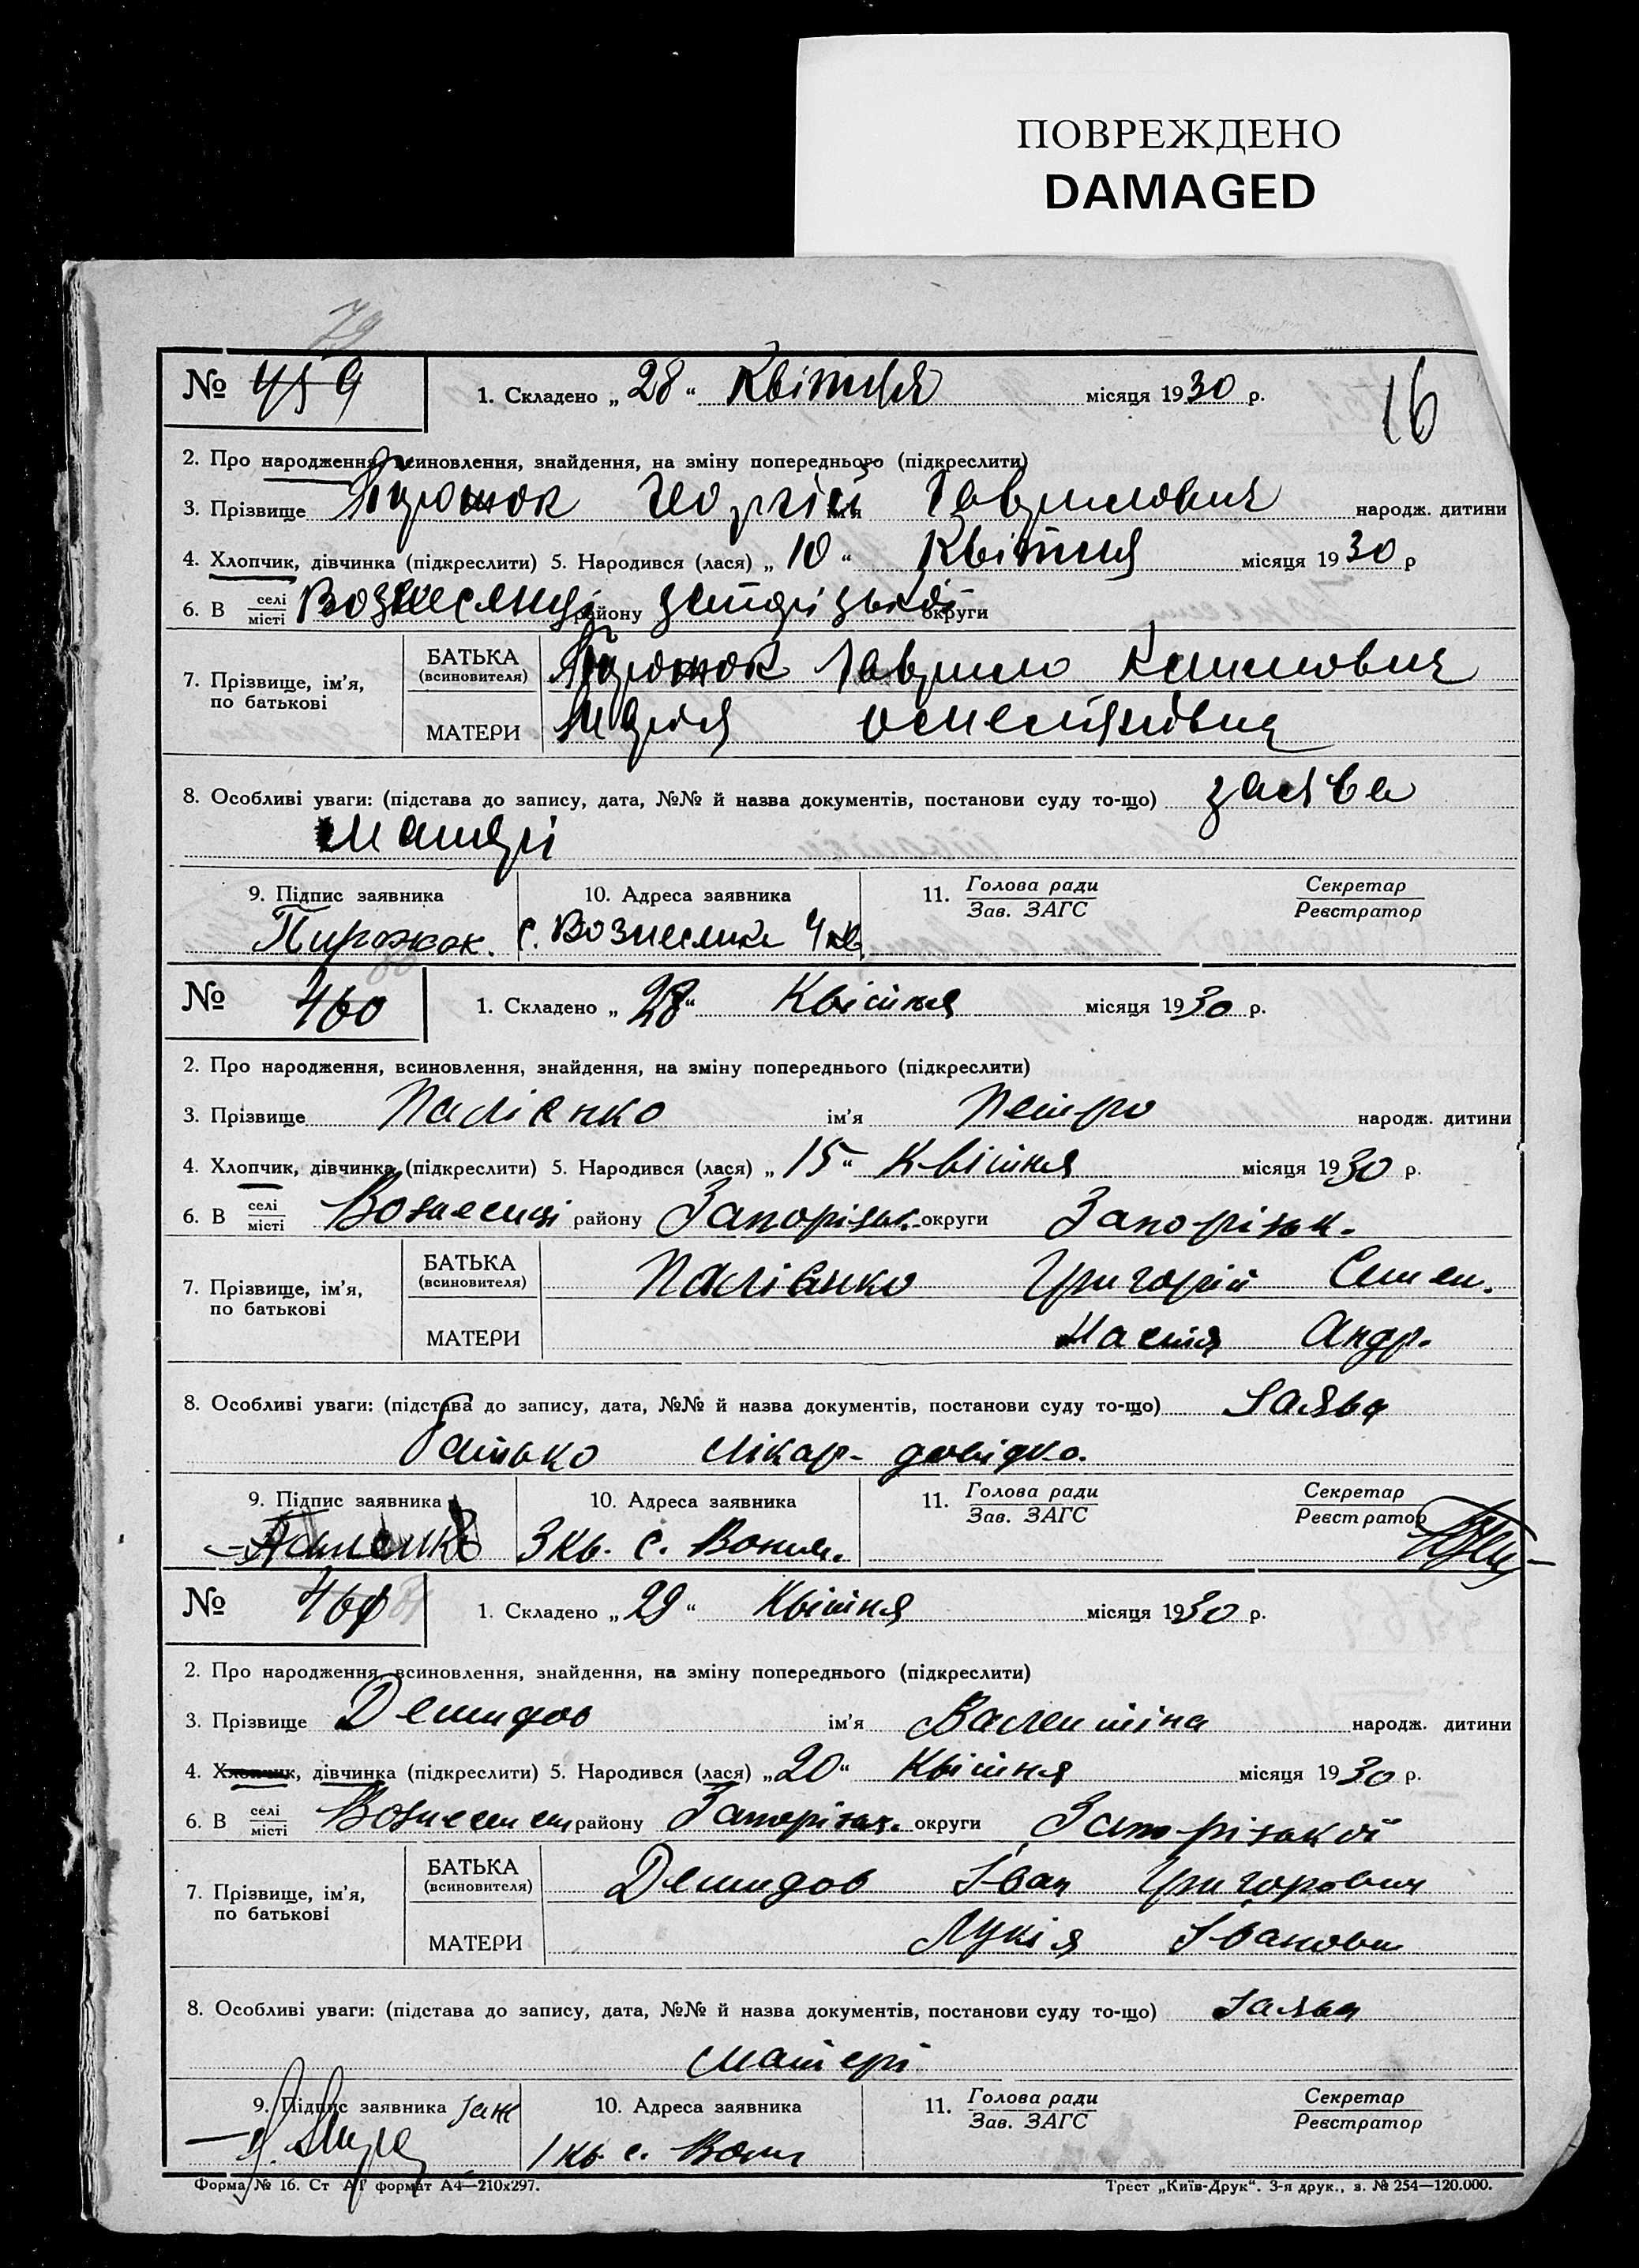 ПОВРЕЖДЕНО
DAMAGED
79
№ 459 1. Складено „ 28 “ Квітня місяця 1930 р.
16
2. Про народження, всиновлення, знайдення, на зміну попереднього (підкреслити)
3. Прізвище Пирожок ім'я Георгій Гаврилович народж. дитини
4. Хлопчик, дівчинка (підкреслити) 5. Народився (лася) „ 10 “ Квітня місяця 1930 р
6. В селі/місті Вознесенці району запорізької округи
7. Прізвище, ім'я, по батькові
БАТЬКА (всиновителя) Пирожок Гаврило Климович
МАТЕРИ Марія
8. Особливі уваги: (підстава до запису, дата, №№ й назва документів, постанови суду то-що) заява
матері
9. Підпис заявника 10. Адреса заявника 11. Голова ради/Зав. ЗАГС Секретар/Реєстратор
Пирожок. с. Вознесенка 4 кв
№ 460 1. Складено „ 28 “ Квітня місяця 1930 р.
2. Про народження, всиновлення, знайдення, на зміну попереднього (підкреслити)
3. Прізвище Палієнко ім'я Петро народж. дитини
4. Хлопчик, дівчинка (підкреслити) 5. Народився (лася) „ 15 “ Квітня місяця 1930 р.
6. В селі/місті Вознесенці району Запорізьк. округи Запорізьк.
7. Прізвище, ім'я, по батькові
БАТЬКА (всиновителя) Палієнко Григорій Семен.
МАТЕРИ Настя Андр.
8. Особливі уваги: (підстава до запису, дата, №№ й назва документів, постанови суду то-що) Заява
батько лікар- довідка.
9. Підпис заявника 10. Адреса заявника 11. Голова ради/Зав. ЗАГС Секретар/Реєстратор
3 кв. с. Вознес.
№ 461 1. Складено „ 29 “ Квітня місяця 1930 р.
2. Про народження, всиновлення, знайдення, на зміну попереднього (підкреслити)
3. Прізвище Демидов ім'я Валентіна народж. дитини
4. Хлопчик, дівчинка (підкреслити) 5. Народився (лася) „ 20 “ Квітня місяця 1930 р.
6. В селі/місті Вознесенці району Запорізьк. округи Запорізької
7. Прізвище, ім'я, по батькові
БАТЬКА (всиновителя) Демидов Іван Григорович
МАТЕРИ Лукія Івановн
8. Особливі уваги: (підстава до запису, дата, №№ й назва документів, постанови суду то-що) Заява
матері
9. Підпис заявника 10. Адреса заявника 11. Голова ради/Зав. ЗАГС Секретар/Реєстратор
1 кв. с. Возн
Форма № 16. Ст АГ формат А4—210х297. Трест „Київ-Друк“. 3-я друк., з. № 254—120.000.